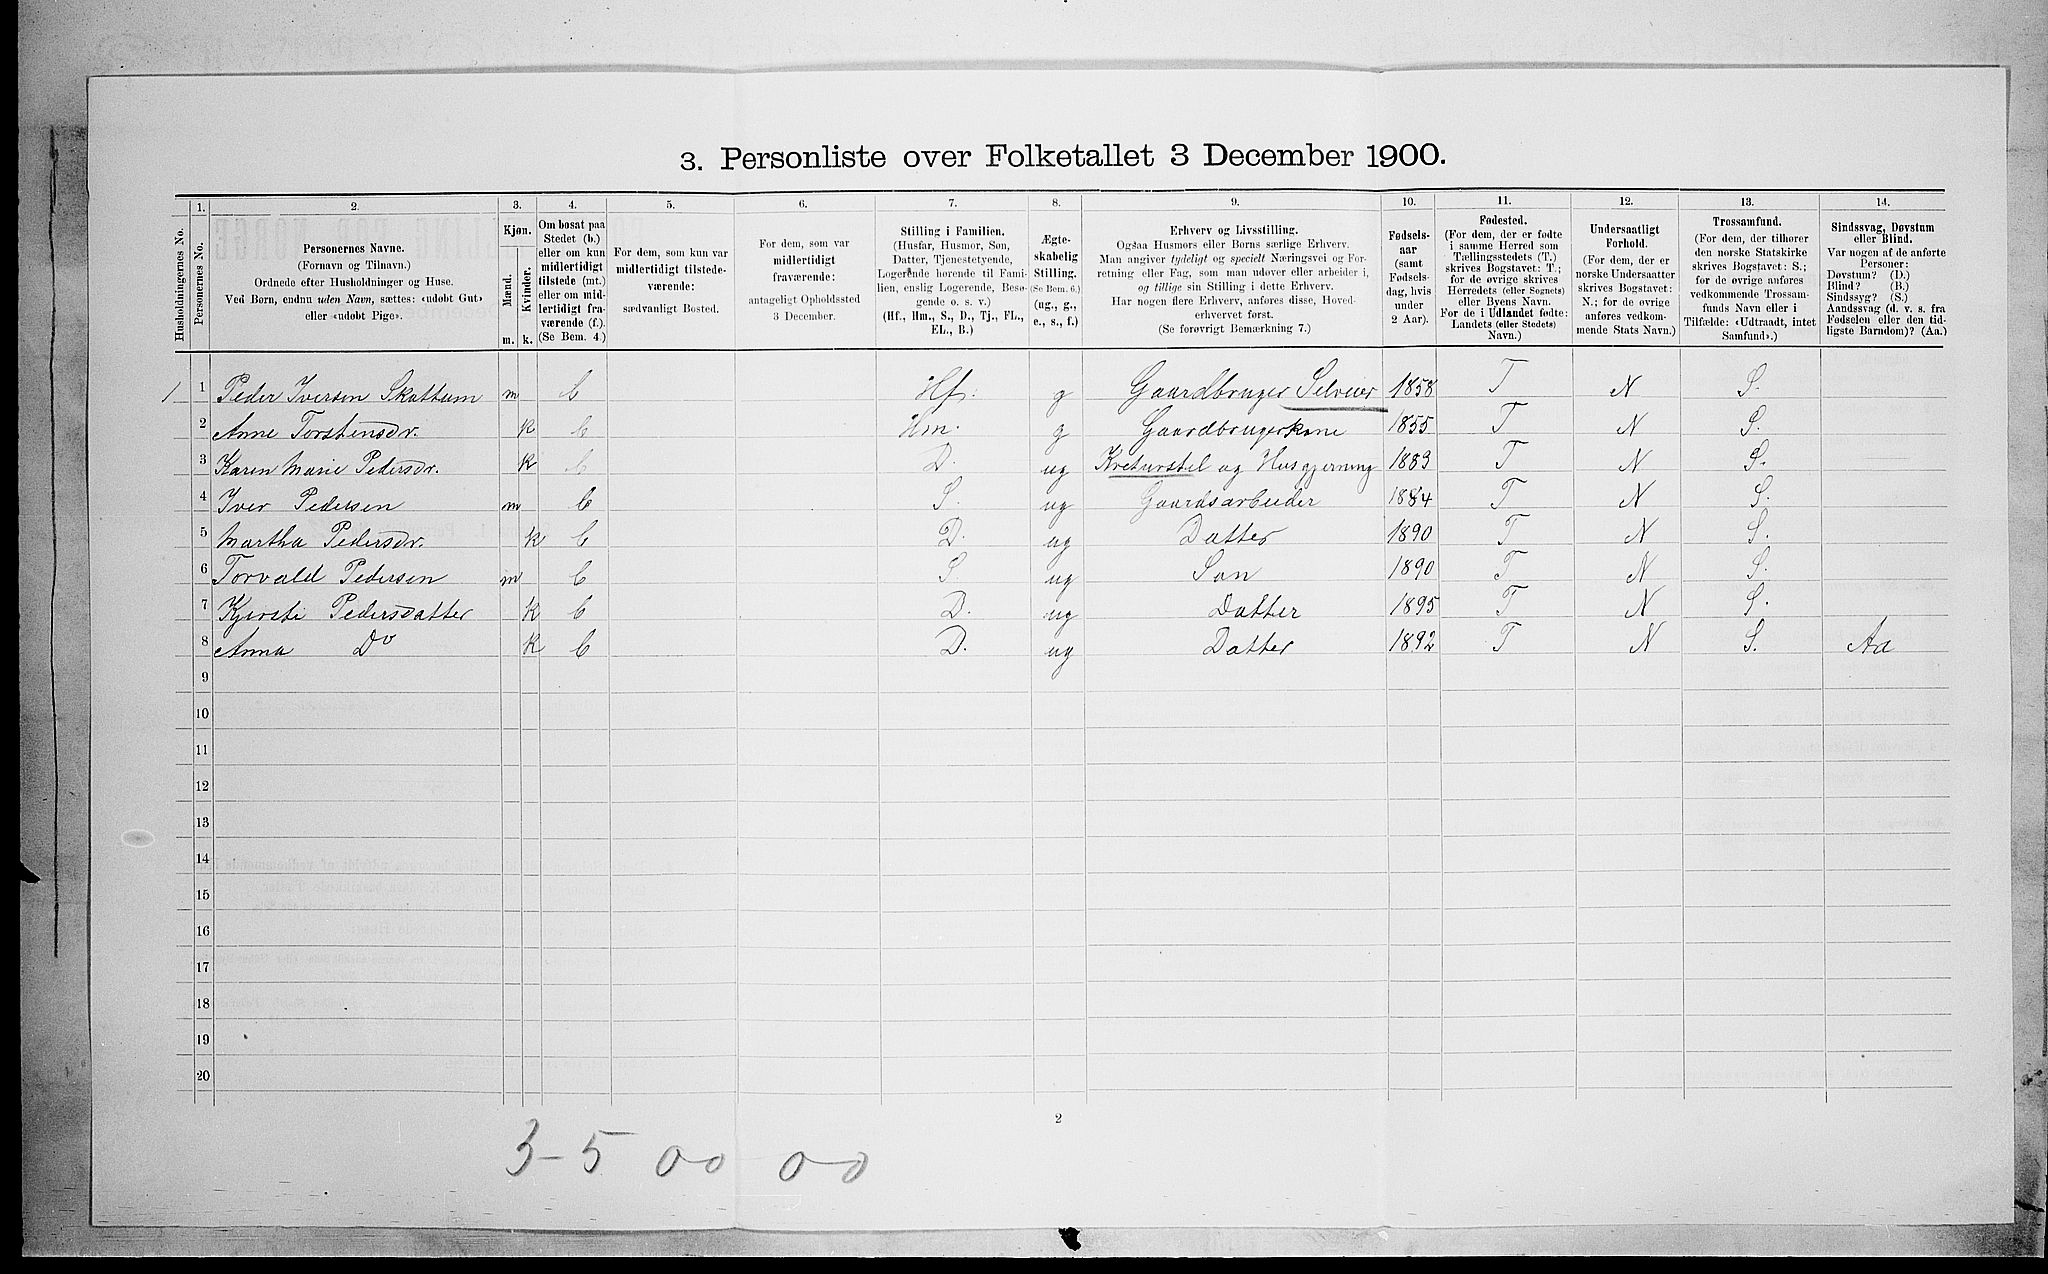 3. Personliste over Folketallet 3 December 1900.
1. 2. 3. 4. 5. 6. 7. 8. 9. 10. 11. 12. 13. 14.
Husholdningernes No.
Personernes No.
Personernes Navne.
(Fornavn og Tilnavn.)
Ordnede efter Husholdninger og Huse.
Ved Børn, endnu uden Navn, sættes: «udøbt Gut»
eller «udøbt Pige».
Kjøn.
Mænd.
Kvinder.
m. k.
Om bosat paa
Stedet (b.)
eller om kun
midlertidigt
tilstede (mt.)
eller om mid-
lertidigt fra-
værende (f.).
(Se Bem. 4.)
For dem, som kun var
midlertidigt tilstede-
værende:
sædvanligt Bosted.
For dem, som var
midlertidigt
fraværende:
antageligt Opholdssted
3 December.
Stilling i Familien.
(Husfar, Husmor, Søn,
Datter, Tjenestetyende,
Logerende hørende til Fami-
lien, enslig Logerende, Besø-
gende o. s. v.)
(Hf., Hm., S., D., Tj., FL.,
EL., B.)
Ægte-
skabelig
Stilling.
(Se Bem. 6.)
(ug., g.,
e., s., f.)
Erhverv og Livsstilling.
Ogsaa Husmors eller Børns særlige Erhverv.
Man angiver tydeligt og specielt Næringsvei og For-
retning eller Fag, som man udøver eller arbeider i,
og tillige sin Stilling i dette Erhverv.
Har nogen flere Erhverv, anføres disse, Hoved-
erhvervet først.
(Se forøvrigt Bemærkning 7.)
Fødsels-
aar
(samt
Fødsels-
dag, hvis
under
2 Aar).
Fødested.
(For dem, der er fødte
i samme Herred som
Tællingsstedets (T.)
skrives Bogstavet: T.;
for de øvrige skrives
Herredets (eller Sognets)
eller Byens Navn.
For de i Udlandet fødte:
Landets (eller Stedets)
Navn.)
Undersaatligt
Forhold.
(For dem, der er
norske Undersaatter
skrives Bogstavet:
N.; for de øvrige
anføres vedkom-
mende Stats Navn.)
Trossamfund.
(For dem, der tilhører
den norske Statskirke
skrives Bogstavet: S.;
for de øvrige anføres
vedkommende Trossam-
funds Navn eller i
Tilfælde: «Udtraadt, intet
Samfund».)
Sindssvag, Døvstum
eller Blind.
Var nogen af de anførte
Personer:
Døvstum? (D.)
Blind? (B.)
Sindssyg? (S.)
Aandssvag (d. v. s. fra
Fødselen eller den tid-
ligste Barndom)? (Aa.)
1 1 Peder Iversen Skattum m b Hf. g Gaardbruger Selveier 1858 T N S.
2 Anne Torstensdr. k b Hm. g Gaardbrugerkone 1855 T N S.
3 Karen Marie Pedersdr. k b D. ug Kreturstel og Husgjerning 1883 T N S.
4 Iver Pedersen m b S. ug Gaardsarbeider 1884 T N S.
5 Martha Pedersdr. k b D. ug Datter 1890 T N S.
6 Torvald Pedersen m b S ug Søn 1890 T N S.
7 Kjersti Pedersdatter k b D. ug Datter 1895 T N S.
8 Anna Do k b D. ug Datter 1892 T N S. Aa
9
10
11
12
13
14
15
16
17
18
19
20
2
3-5 00 00